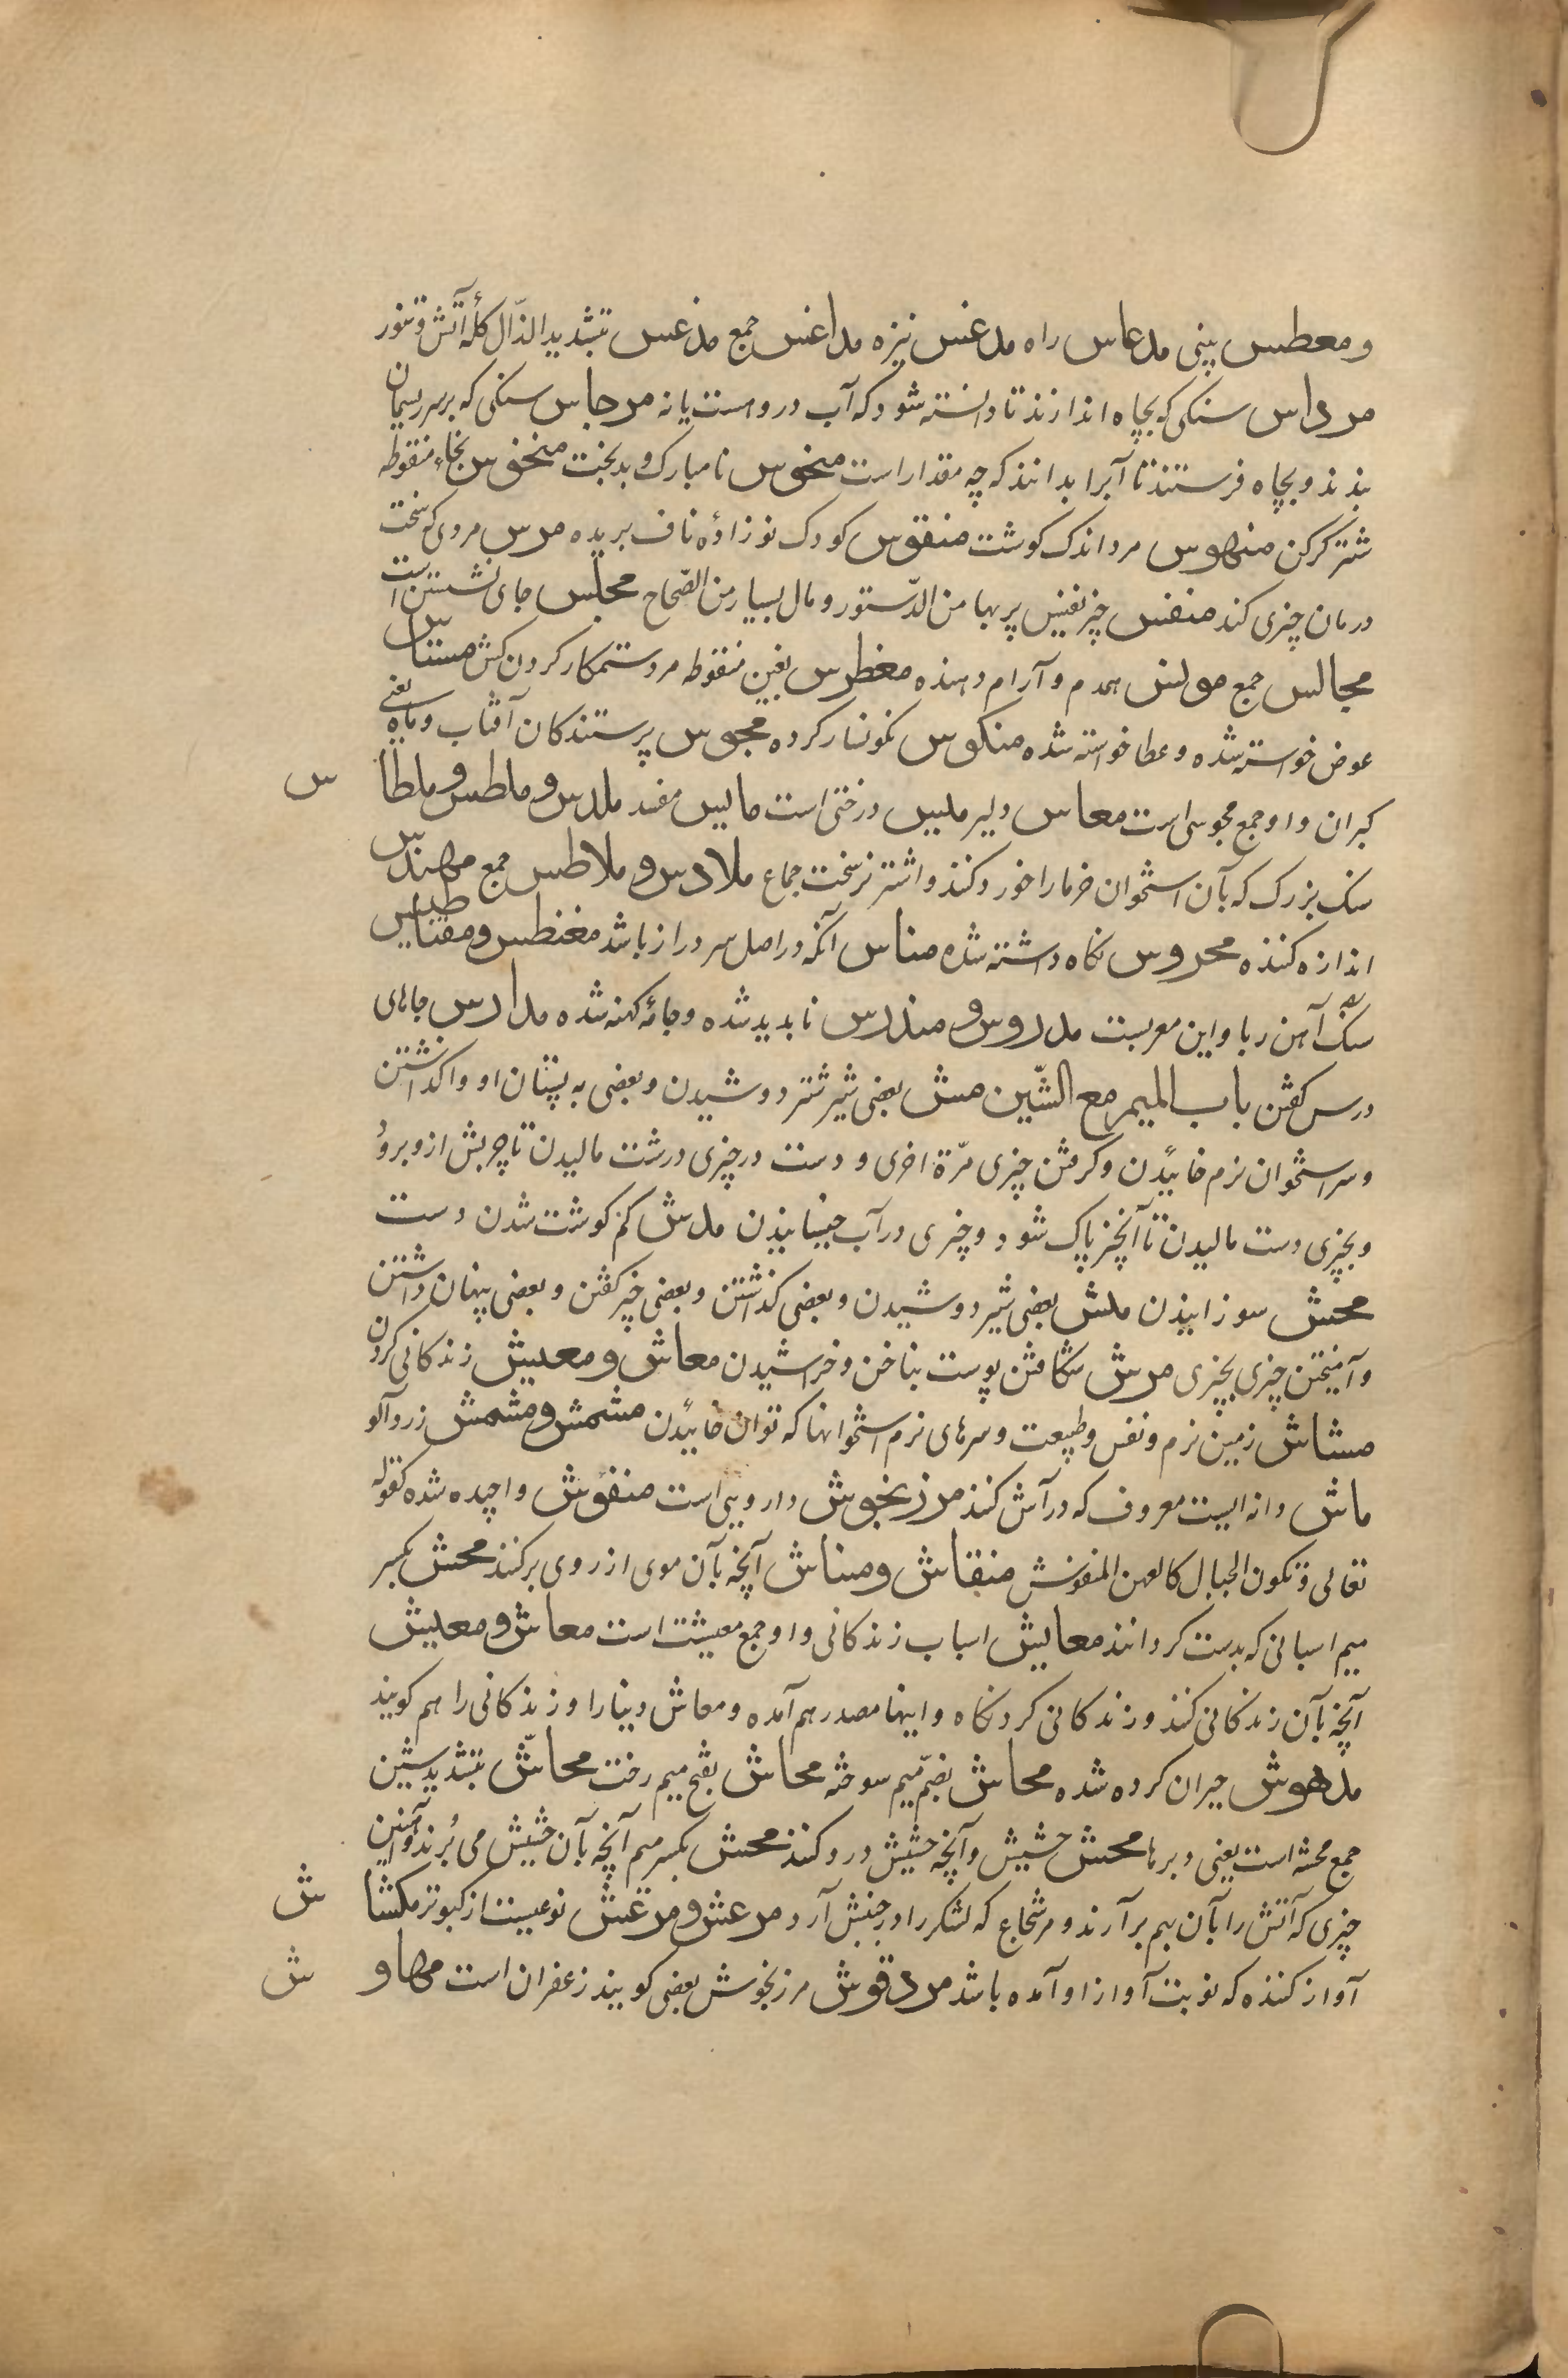 و معطس بینی مدعاس راه مدعس نیزه مداعس جمع مدعس بتشدید الذّال کلهٔ آتش و تنور
مرداس سنکی که بچاه اندازند تا دانسته شود که آب درو هست یا نه مرجاس سنکی که بر سر ریسمان
بندند و بچاه فرستند تا آبرا بدانند که چه مقدار است منحوس نا مبارک و بدبخت منخوس بخاء منقوطه
شتر کرکن منهوس مرد اندک کوشت منفوس کودک نو زادهٔ ناف بریده مرس مردی که سخت
درمان چیزی کند منفس چیز نفیس پر بها من الدّستور و مال بسیار من الصّحاح مجلس جای نشستن است
مجالس جمع مونس همدم و آرام دهنده مغطرس بغین منقوطه مرد ستمکار کردن کش مستاس
عوض خواسته شده و عطا خواسته شده منکوس نکونسار کرده مجوس پرستندکان آفتاب و ماه یعنی
کبران و او جمع مجوسی است معاس دلیر ملیس درختی است مایس مفسد ملدس و ملطس و ملطاس
سنک بزرک که بآن استخوان خرما را خورد کنند و اشتر نر سخت جماع ملادس و ملاطس جمع مهندس
اندازه کننده محروس نکاه داشته شده مناس آنکه در اصل سر دراز باشد مغنطس و مقناطیس
سنک آهن ربا و این معربست مدروس و مندرس نابدید شده و جامهٔ کهنه شده مدارس جاهای
درس کفتن باب المیم مع الشّین مش بعضی شیر شتر دوشیدن و بعضی به پستان او واکذاشتن
و سر استخوان نرم خائیدن و کرفتن چیزی مرّة اخری و دست در چیزی درشت مالیدن تا چربش ازو برود
و بچیزی دست مالیدن تا آنچیز پاک شود و چیزی در آب جنبانیدن مدش کم کوشت شدن دست
محش سوزانیدن ملش بعضی شیر دوشیدن و بعضی کذاشتن و بعضی خبر کفتن و بعضی پنهان داشتن
و آمیختن چیزی بچیزی مرش شکافتن پوست بناخن و خراشیدن معاش و معیش زندکانی کردن
مشاش زمین نرم و نفس و طبیعت و سرهای نرم استخوانها که توان خائیدن مشمش و مشمش زردآلو
ماش دانه ایست معروف که در آش کنند مرزنجوش دارویی است منفوش واچیده شده کقوله
تعالی و تکون الجبال کالعهن المنفوش منقاش و مناش آنچه بآن موی از روی بر کنند محش بکسر
میم اسبابی که بدست کردانند معایش اسباب زندکانی و او جمع معیشت است معاش و معیش
آنچه بآن زندکانی کنند و زندکانی کردنکاه و اینها مصدر هم آمده و معاش دینارا و زندکانی را هم کویند
مدهوش حیران کرده شده محاش بضمّ میم سوخته محاش بفتح میم رخت محاشّ بتشدید شین
جمع محشه است یعنی دبرها محش حشیش و آنچه حشیش درو کنند محش بکسر میم آنچه بآن حشیش می بُرند و آهنین
چیزی که آتش را بآن بهم بر آرند و مرد شجاع که لشکر را در جنبش آرد مرعش و مرعش نوعیست از کبوتر مکشاش
آواز کننده که نوبت آواز او آمده باشد مردقوش مرزنجوش بعضی کویند زعفران است مهاوش